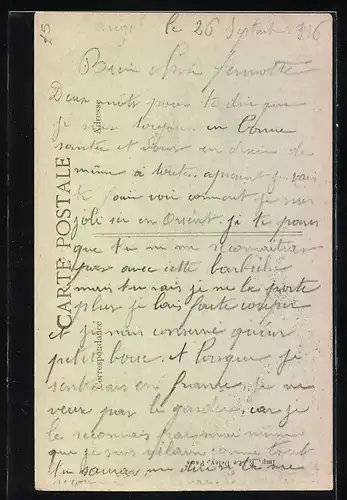 le 26 Septembre 1916
Bien chère Jeannette
Deux mots pour te dire que
je suis toujours en bonne
santée et vous en désire de
même à toute. aprésent je vais
te faire voir comment je suis
joli ici en Orient. je te pense
que tu ne me reconnaitras
pas avec cette barbiche
mais tu sais je ne la porte
plus je lais faite couper
et je nais conservé qu'un
petit bouc. et lorsque je
rentrerais en France, je ne
veux pas la garder, car je
le reconnais moi même
que je suis vilain comme tout
tu me diras
CARTE POSTALE
Correspondance
Adresse